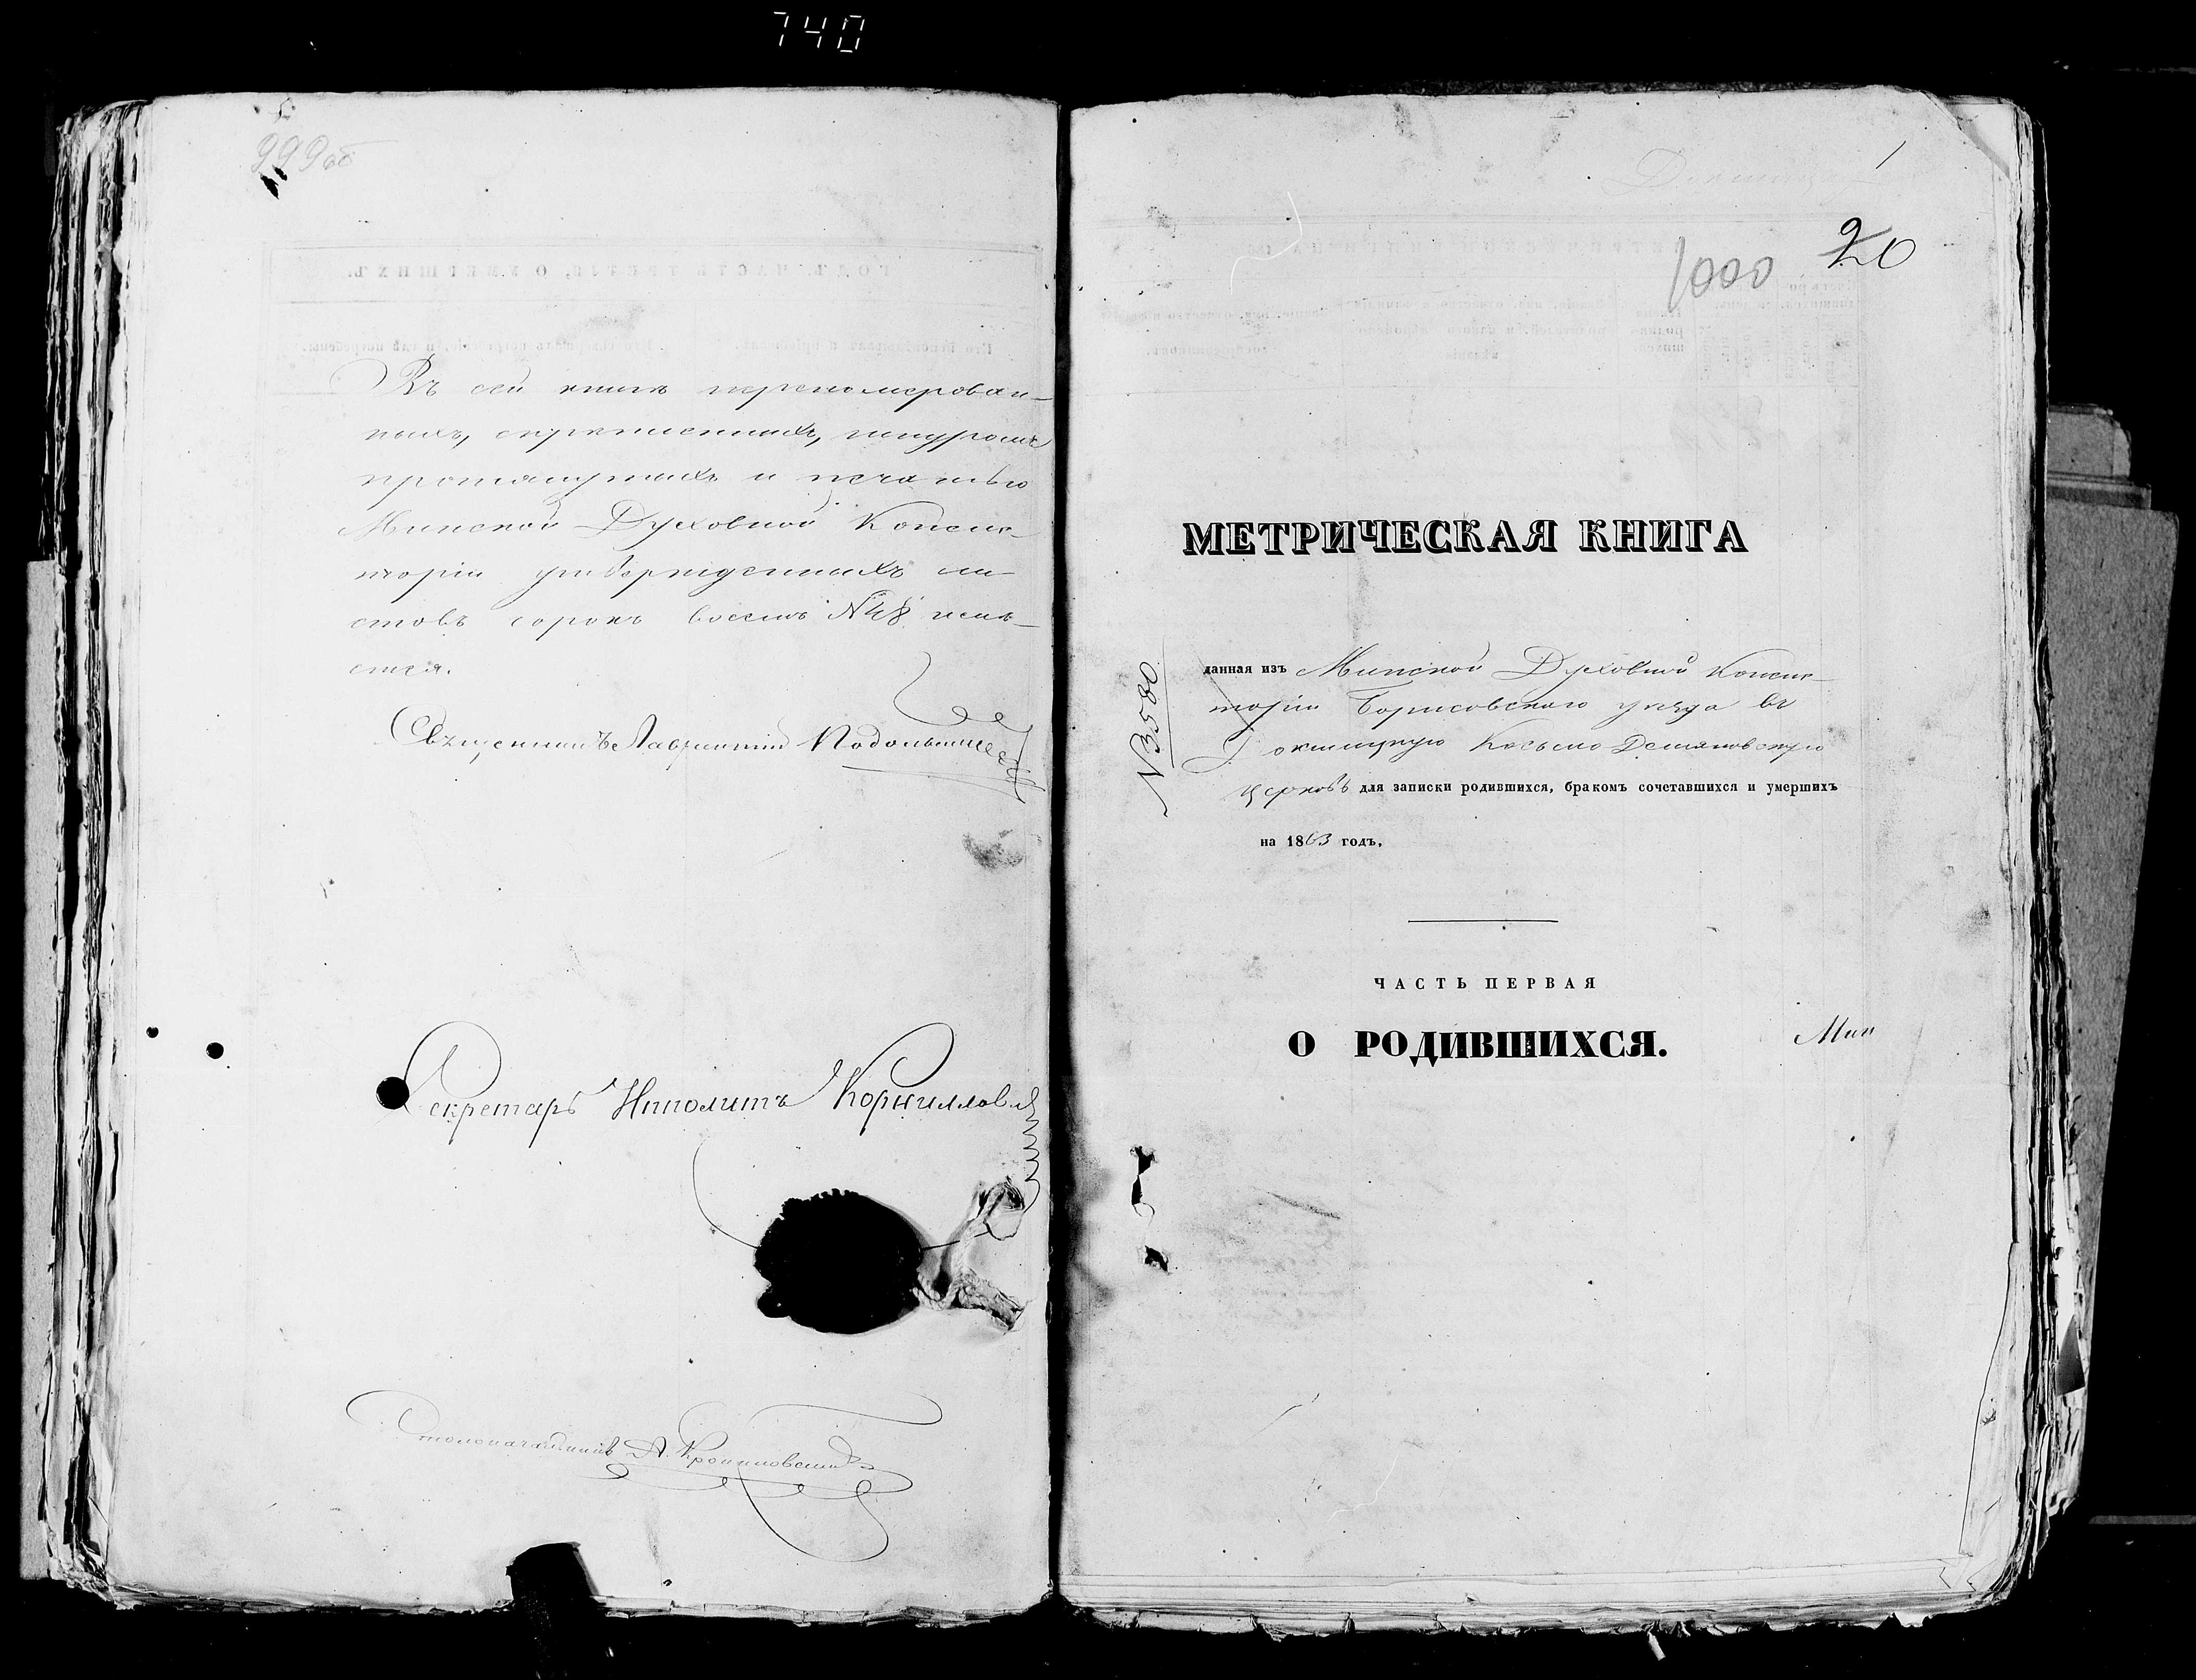 740
999об
Въ сей книгѣ перенумерован-
ныхъ, скрепленныхъ, шнуромъ
протянутыхъ и печатью
Минской Духовной Консис-
торіи утвержденныхъ ли-
стовъ сорокъ восемь № 48 имѣ-
ется.
Священникъ Лаврентій
Секретарь Ипполитъ Корнилловъ
Столоначальникъ А.
1
20
1000
МЕТРИЧЕСКАЯ КНИГА
№ 3580
данная изъ Минской Духовной Консис-
торіи Борисовскаго уѣзда въ
Докшицкую Косьмо Демяновскую
церковь для записки родившихся, бракомъ сочетавшихся и умершихъ
на 1863 годъ.
ЧАСТЬ ПЕРВАЯ
О РОДИВШИХСЯ.
Мин